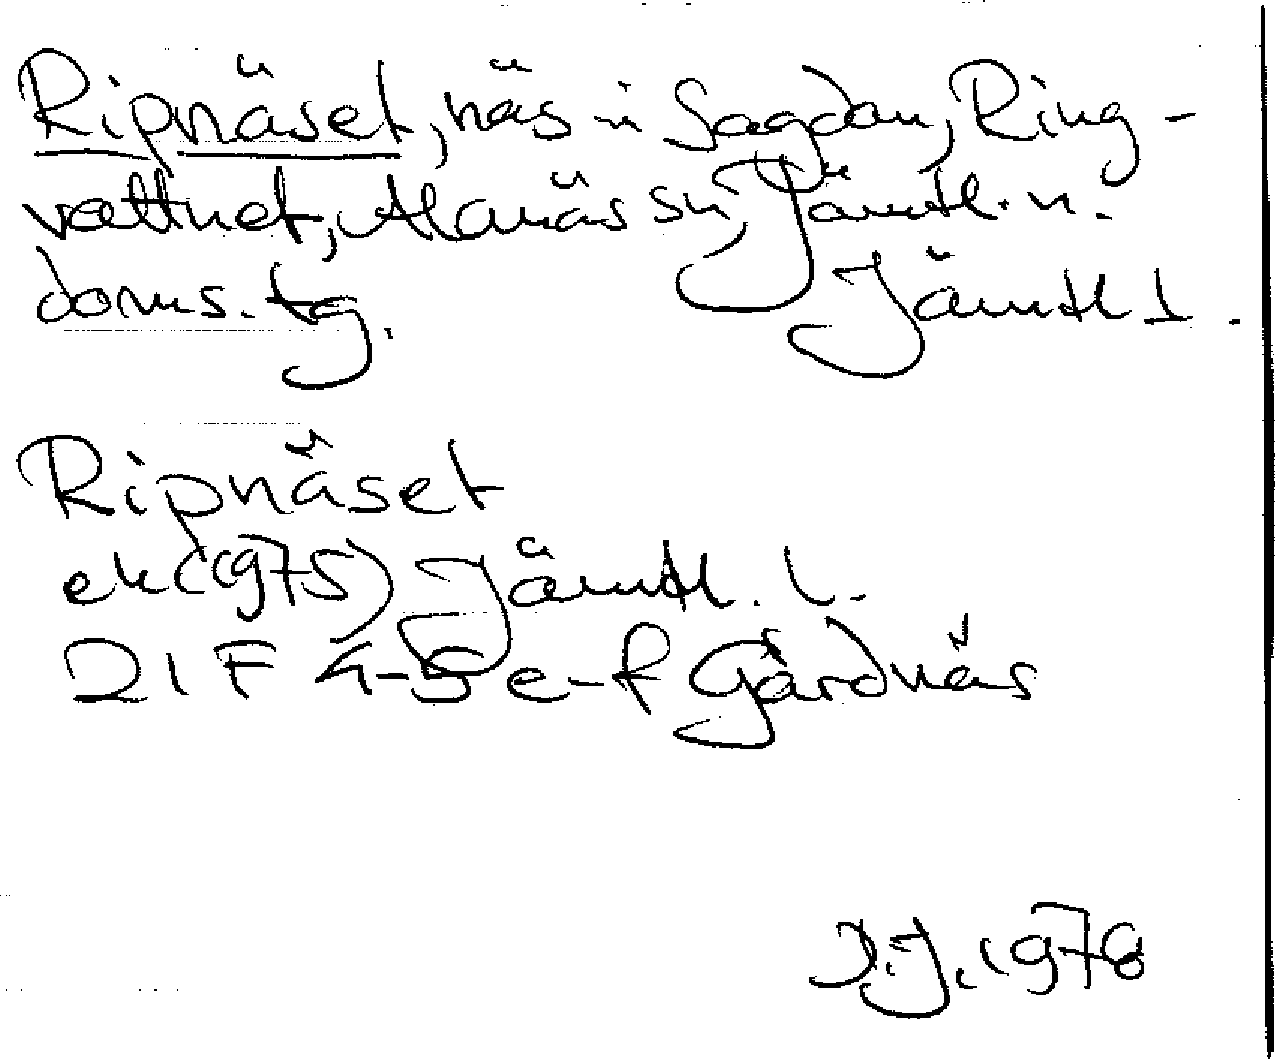 Ripnäset, näs i Sagdan, Ring-
vattnet, Alanäs sn, Jämtl. n.
doms. tg. Jämtl l.
Ripnäset
ek (1975) Jämtl. l.
21 F 4-5 e-f Gärdnäs
D.J. 1978